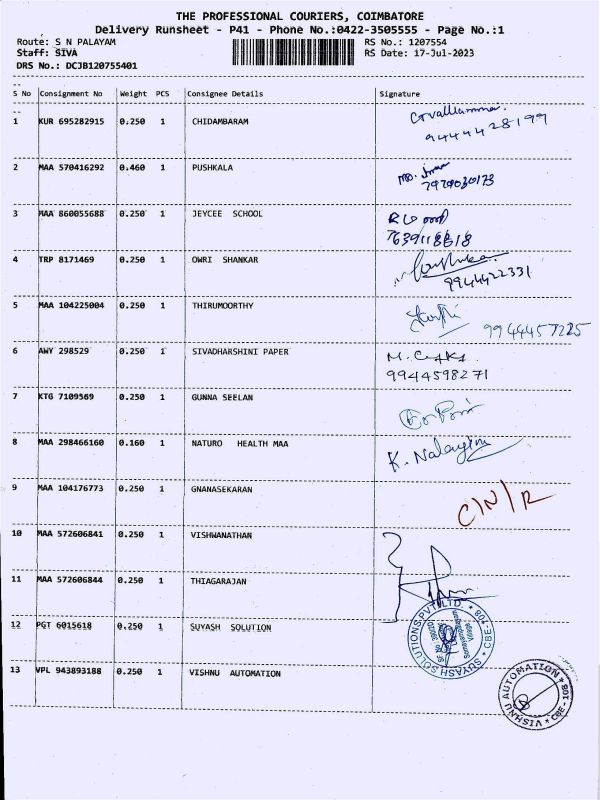 THE PROFESSIONAL COURIERS, COIMBATORE
Delivery Runsheet - P41 - Phone No.:0422-3505555 - Page No.:1
Route: S N PALAYAM RS No.: 1207554
Staff: SIVA RS Date: 17-Jul-2023
DRS No.: DCJB120755401
S No Consignment No Weight PCS Consignee Details Signature
1 KUR 695282915 0.250 1 CHIDAMBARAM
9444428199
2 MAA 570416292 0.460 1 PUSHKALA
3 MAA 860055688 0.250 1 JEYCEE SCHOOL
7639118618
4 TRP 8171469 0.250 1 OWRI SHANKAR
9944422331
5 MAA 104225004 0.250 1 THIRUMOORTHY
9944457225
6 AWY 298529 0.250 1 SIVADHARSHINI PAPER
9944598271
7 KTG 7109569 0.250 1 GUNNA SEELAN
8 MAA 298466160 0.160 1 NATURO HEALTH MAA K. Nalayini
9 MAA 104176773 0.250 1 GNANASEKARAN C/N/R
10 MAA 572606841 0.250 1 VISHWANATHAN
11 MAA 572606844 0.250 1 THIAGARAJAN
12 PGT 6015618 0.250 1 SUYASH SOLUTION
SUYASH SOLUTIONS PVT LTD. * CBE-108 *
13 VPL 943893188 0.250 1 VISHNU AUTOMATION
VISHNU AUTOMATION * CBE-108 *